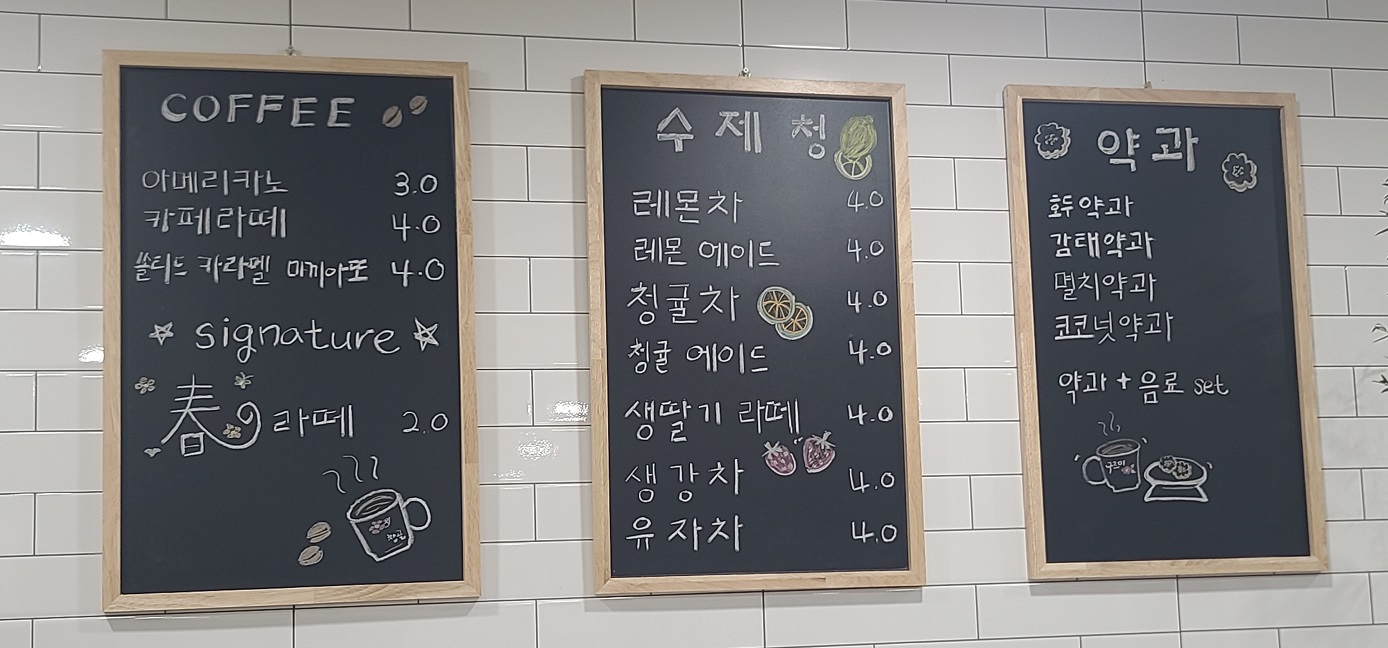 COFFEE
아메리카노 3.0
카페라떼 4.0
쏠티드 카라멜 마끼아또 4.0
signature
春 라떼 2.0
수제청
레몬차 4.0
레몬 에이드 4.0
청귤차 4.0
청귤 에이드 4.0
생딸기 라떼 4.0
생강차 4.0
유자차 4.0
약과
호두약과
감태약과
멸치약과
코코넛약과
약과 + 음료 set